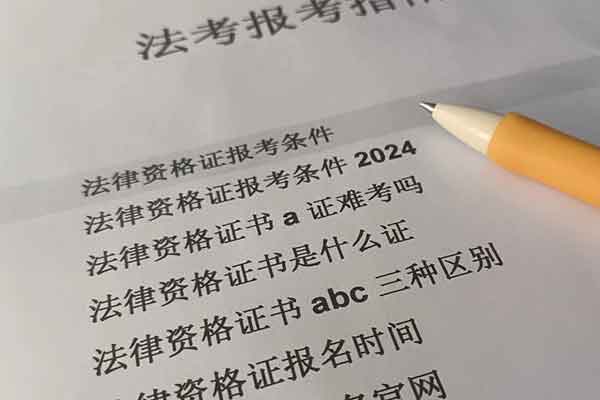 法考报考指
法律资格证报考条件
法律资格证报考条件 2024
法律资格证书 a 证难考吗
法律资格证书是什么证
法律资格证书 abc 三种区别
法律资格证报名时间
官网